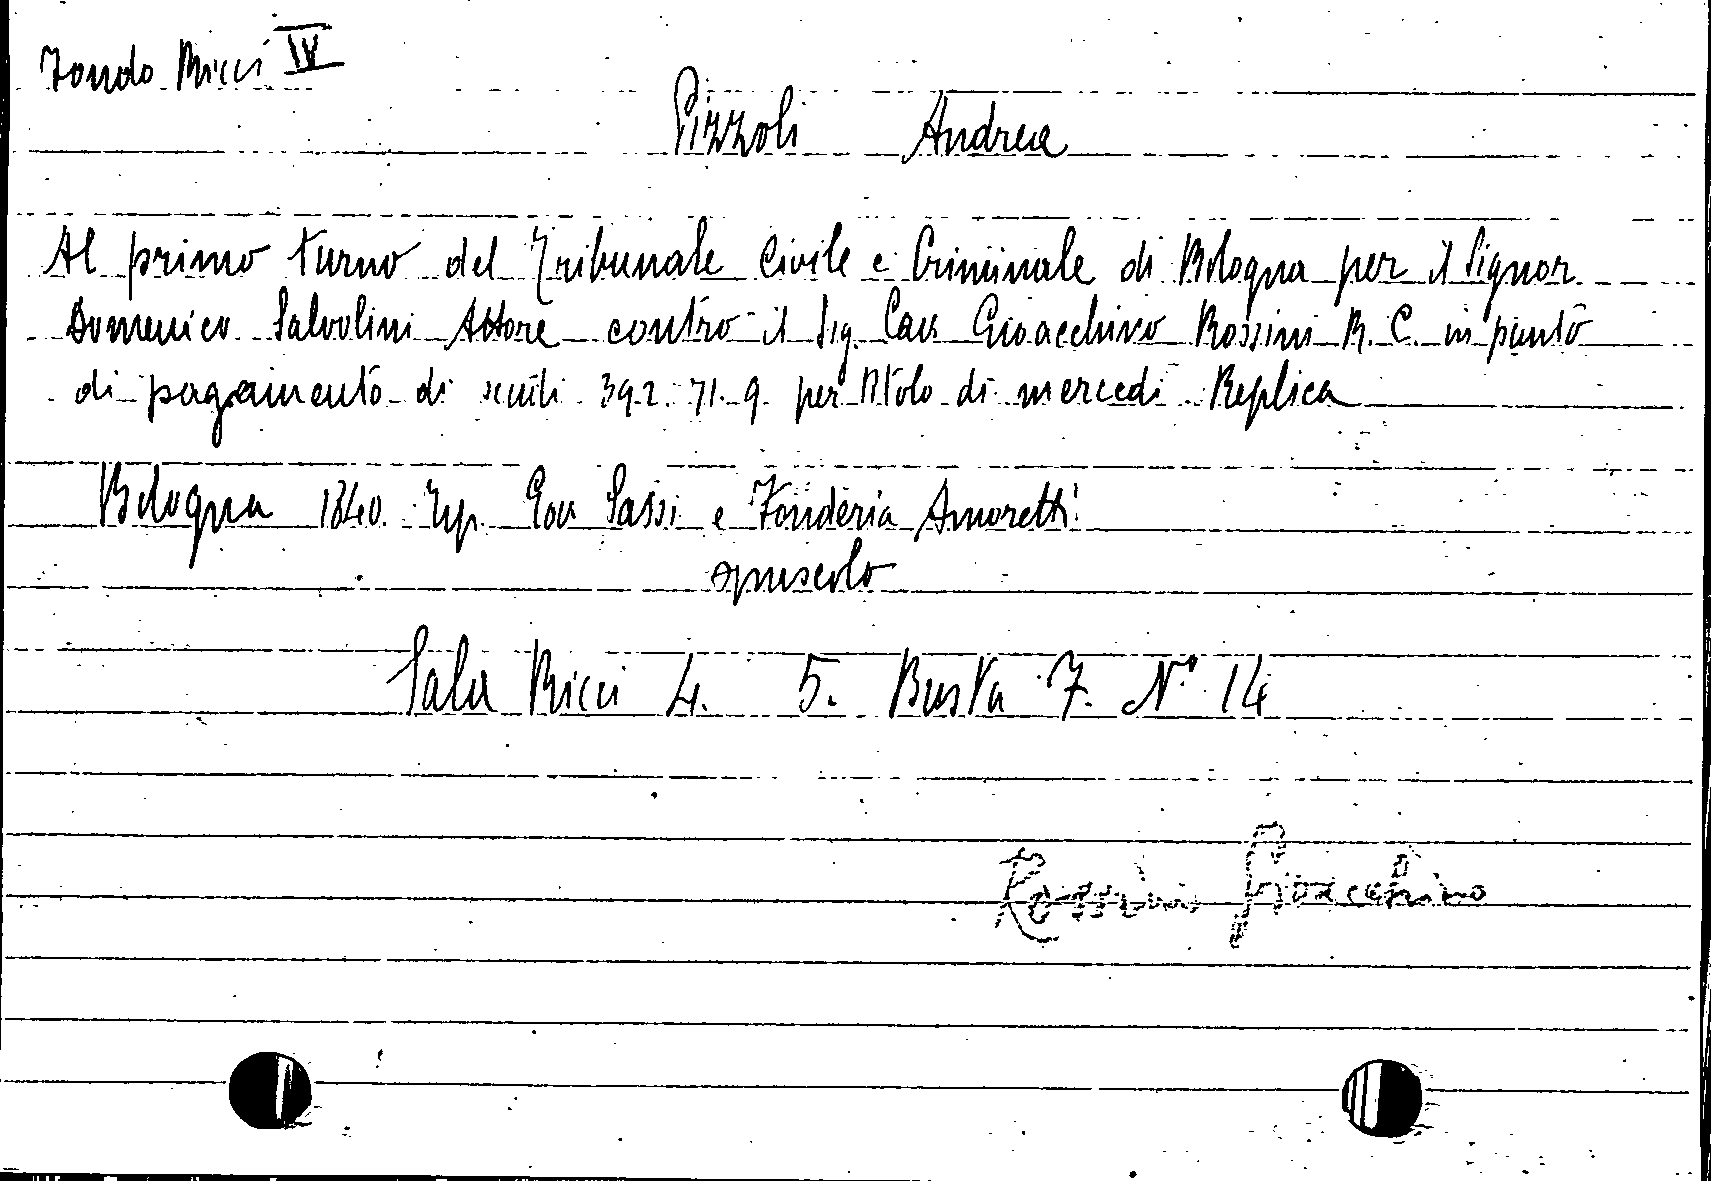 Fondo Ricci IV
Pizzoli Andrea
Al primo turno del Tribunale Civile e Criminale di Bologna per il Signor
Domenico Salvolini Attore contro il Sig. Cav. Gioacchino Rossini R. C. in punto
di pagamento di scudi 392. 71. 9. per titolo di mercedi. Replica
Bologna 1840. Tip. Gov. Sassi e Fonderia Amoretti
opuscolo
Sala Ricci 4. 5. Busta 7. N° 14
Rossini Gioacchino